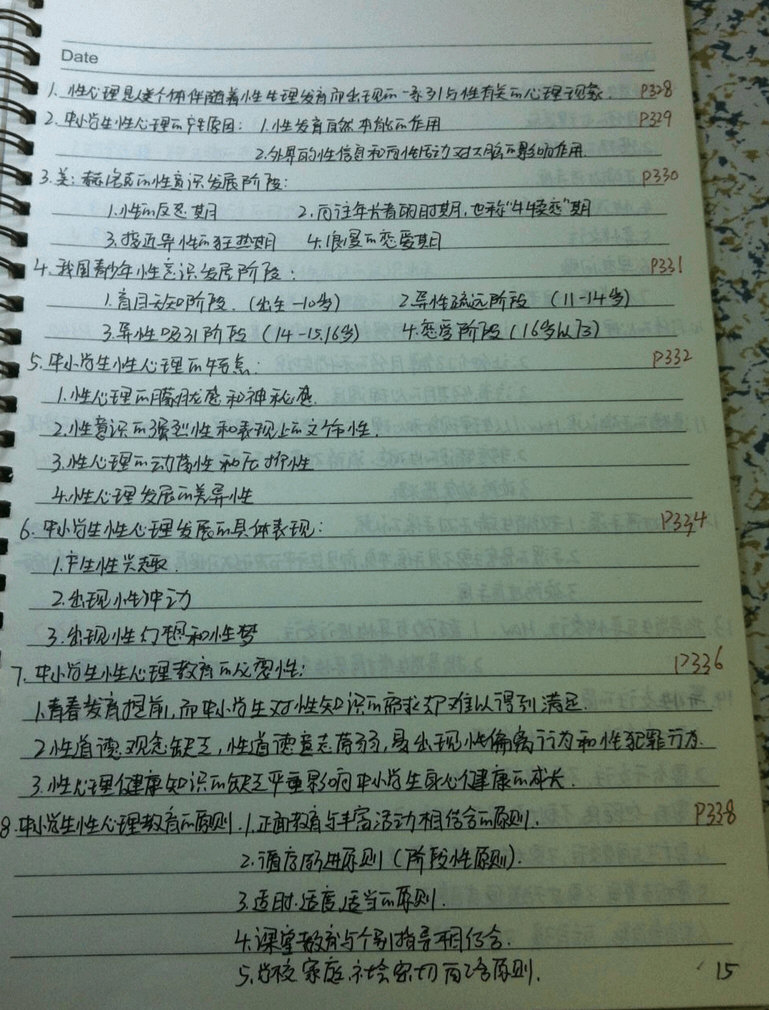 Date
1. 性心理是人类个体伴随着性生理发育而出现的一系列与性有关的心理现象. P328
2. 中小学生性心理的产生原因: 1.性发育自然本能的作用 P329
2.外界的性信息和两性活动对大脑的影响作用.
3. 美: 赫洛克的性意识发展阶段: P330
1.性的反感期 2.向往年长者的时期,也称"牛犊恋"期
3.接近异性的狂热期 4.浪漫的恋爱期
4. 我国青少年性意识发展阶段: P331
1.盲目无知阶段. (出生-10岁) 2.异性疏远阶段 (11-14岁)
3.异性吸引阶段 (14-15.16岁) 4.恋爱阶段 (16岁以后)
5. 中小学生性心理的特点: P332
1.性心理的朦胧感和神秘感.
2.性意识的强烈性和表现上的文饰性.
3.性心理的动荡性和压抑性
4.性心理发展的差异性
6. 中小学生性心理发展的具体表现: P334
1.产生性兴趣.
2.出现性冲动
3.出现性幻想和性梦
7. 中小学生性心理教育的必要性: P336
1.青春发育提前,而中小学生对性知识的需求却难以得到满足.
2.性道德观念缺乏,性道德意志薄弱,易出现性偏离行为和性犯罪行为.
3.性心理健康知识的缺乏严重影响中小学生身心健康的成长.
8. 中小学生性心理教育的原则. 1.正面教育与丰富活动相结合的原则. P338
2.循序渐进原则 (阶段性原则).
3.适时.适度.适当的原则.
4.课堂教育与个别指导相结合.
5.学校.家庭.社会密切配合原则.
15